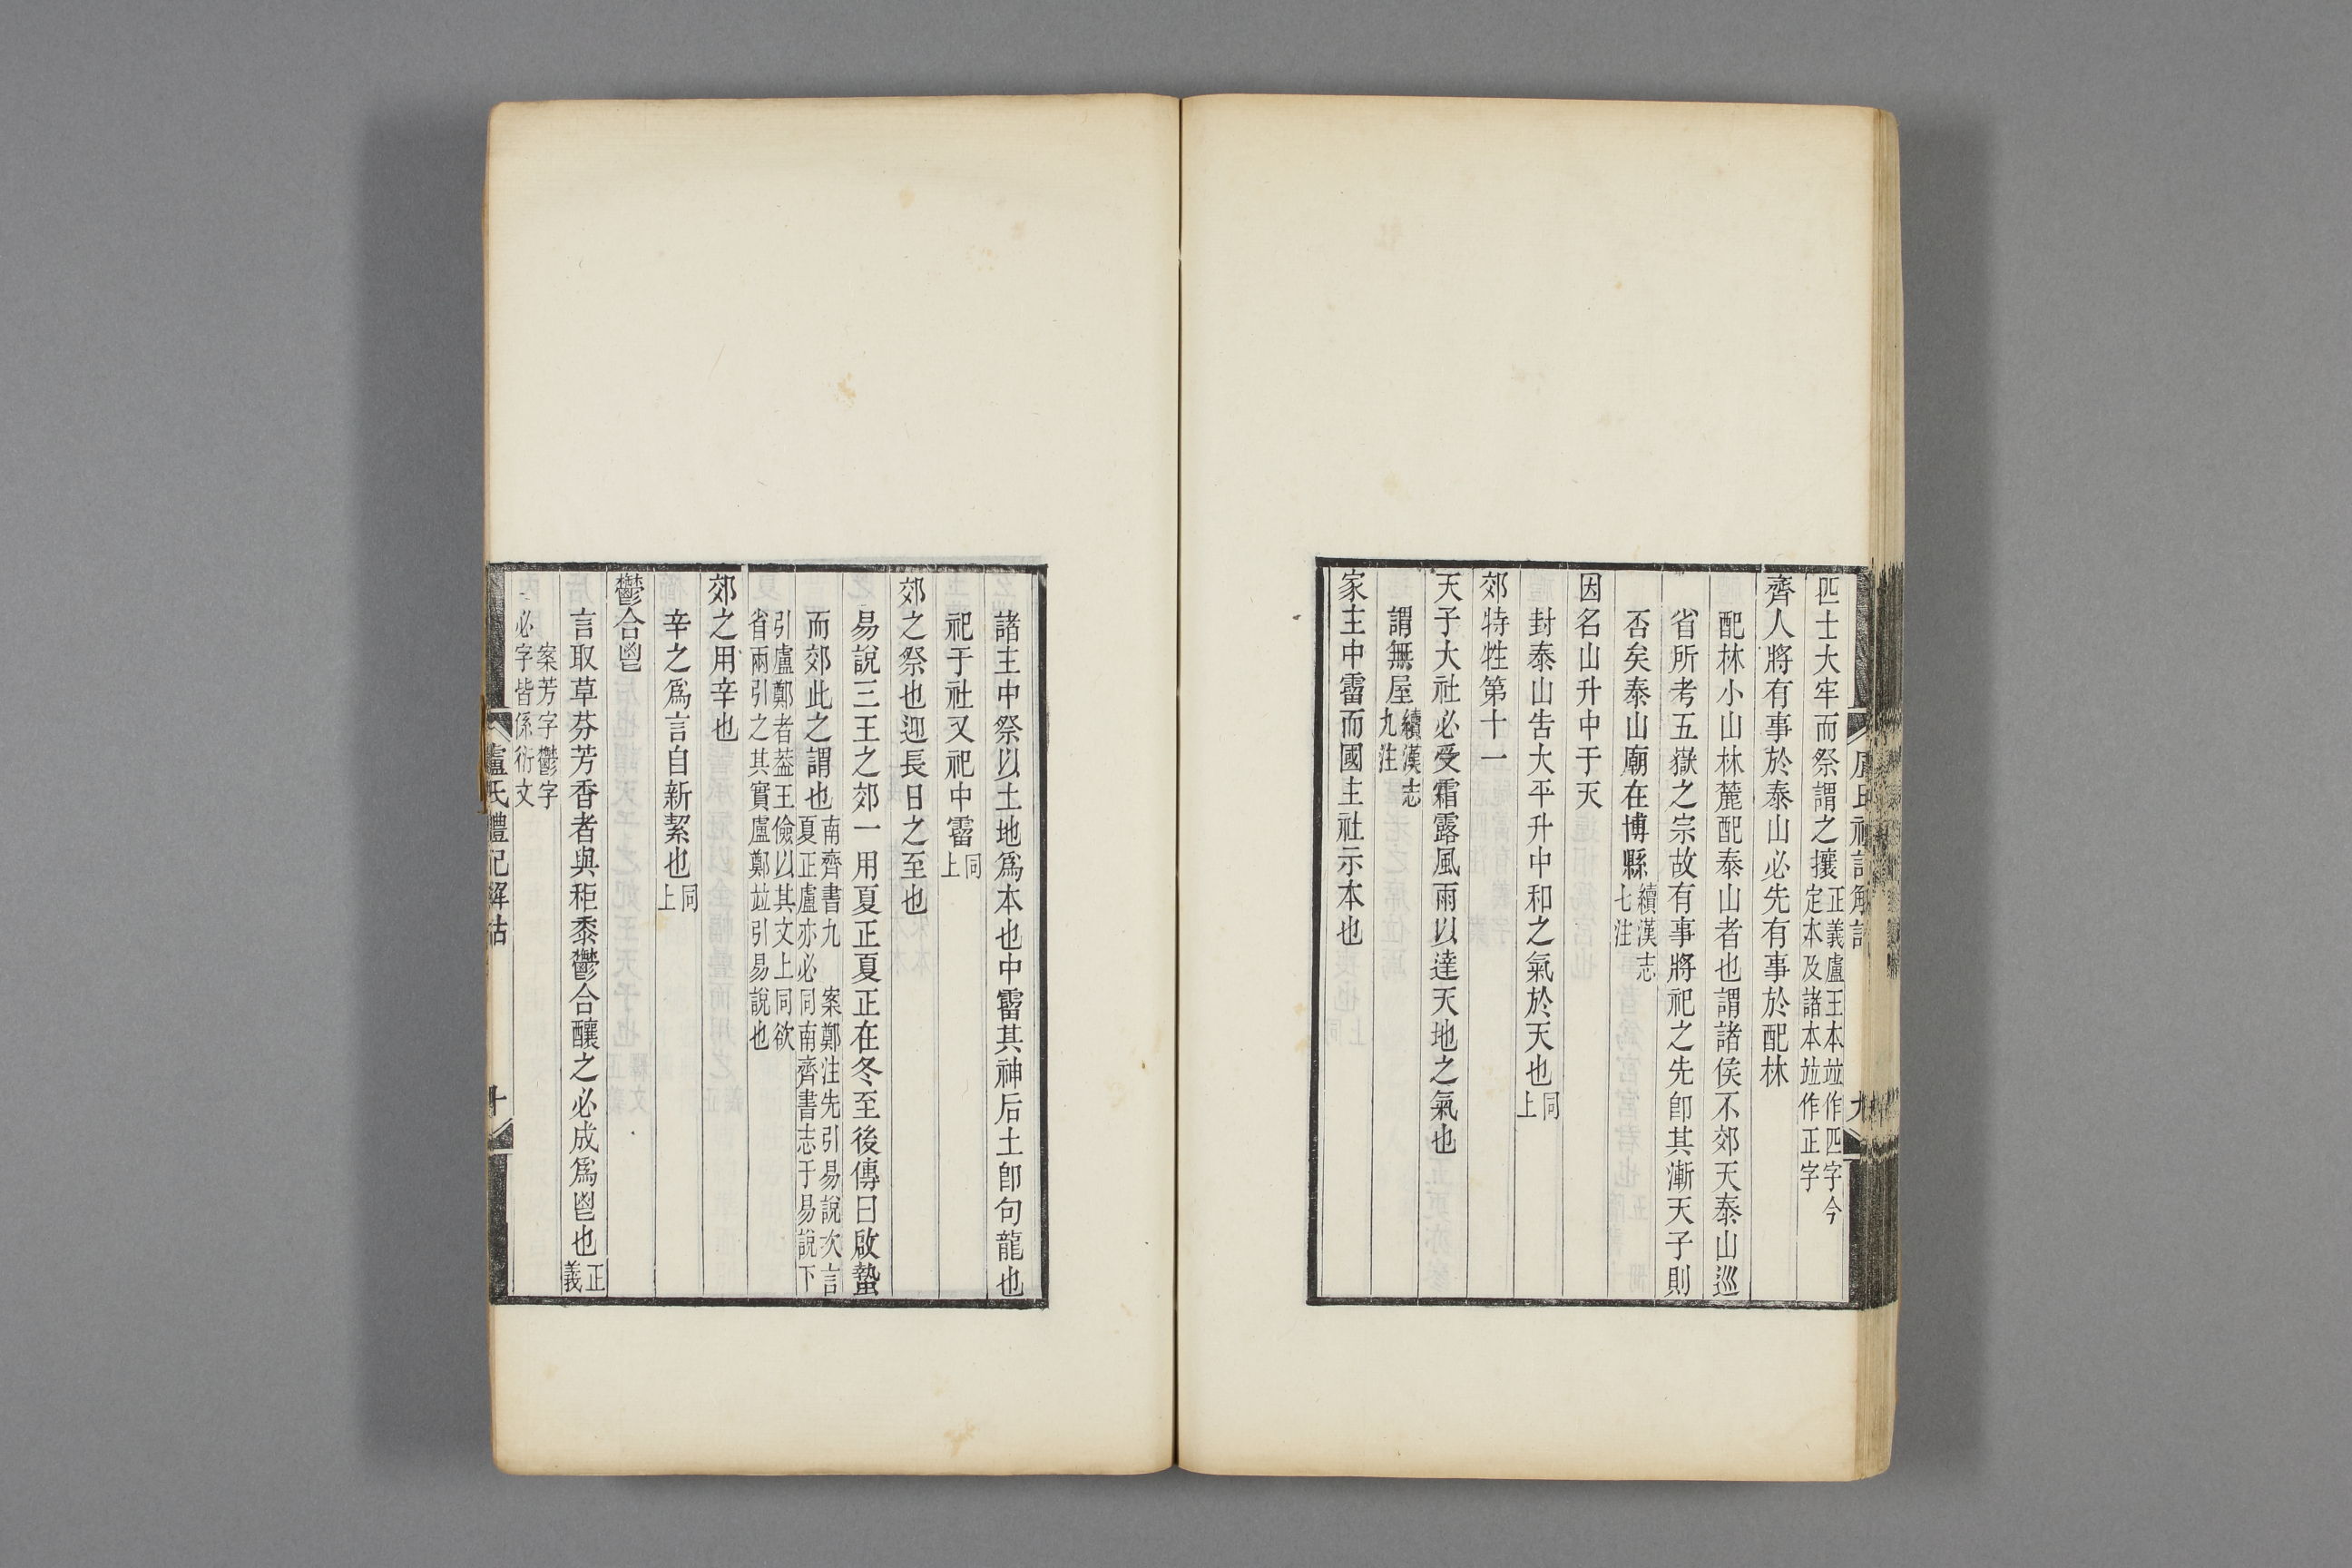 匹士大牢而祭謂之攘正義盧王本竝作匹字今定本及諸本竝作正字
齊人將有事於泰山必先有事於配林
配林小山林麓配泰山者也謂諸侯不郊天泰山巡
省所考五嶽之宗故有事將祀之先卽其漸天子則
否矣泰山廟在博縣續漢志七注
因名山升中于天
封泰山告大平升中和之氣於天也同上
郊特牲第十一
天子大社必受霜露風雨以達天地之氣也
謂無屋續漢志九注
家主中霤而國主社示本也
諸主中祭以土地爲本也中霤其神后土卽句龍也
祀于社又祀中霤同上
郊之祭也迎長日之至也
易說三王之郊一用夏正夏正在冬至後傳曰啟蟄
而郊此之謂也南齊書九 案鄭注先引易說次言夏正盧亦必同南齊書志于易說下
引盧鄭者葢王儉以其文上同欲省兩引之其實盧鄭竝引易說也
郊之用辛也
辛之爲言自新絜也同上
鬱合鬯
言取草芬芳香者與秬黍鬱合釀之必成爲鬯也正義
案芳字鬱字必字皆係衍文
盧氏禮記解詁
十